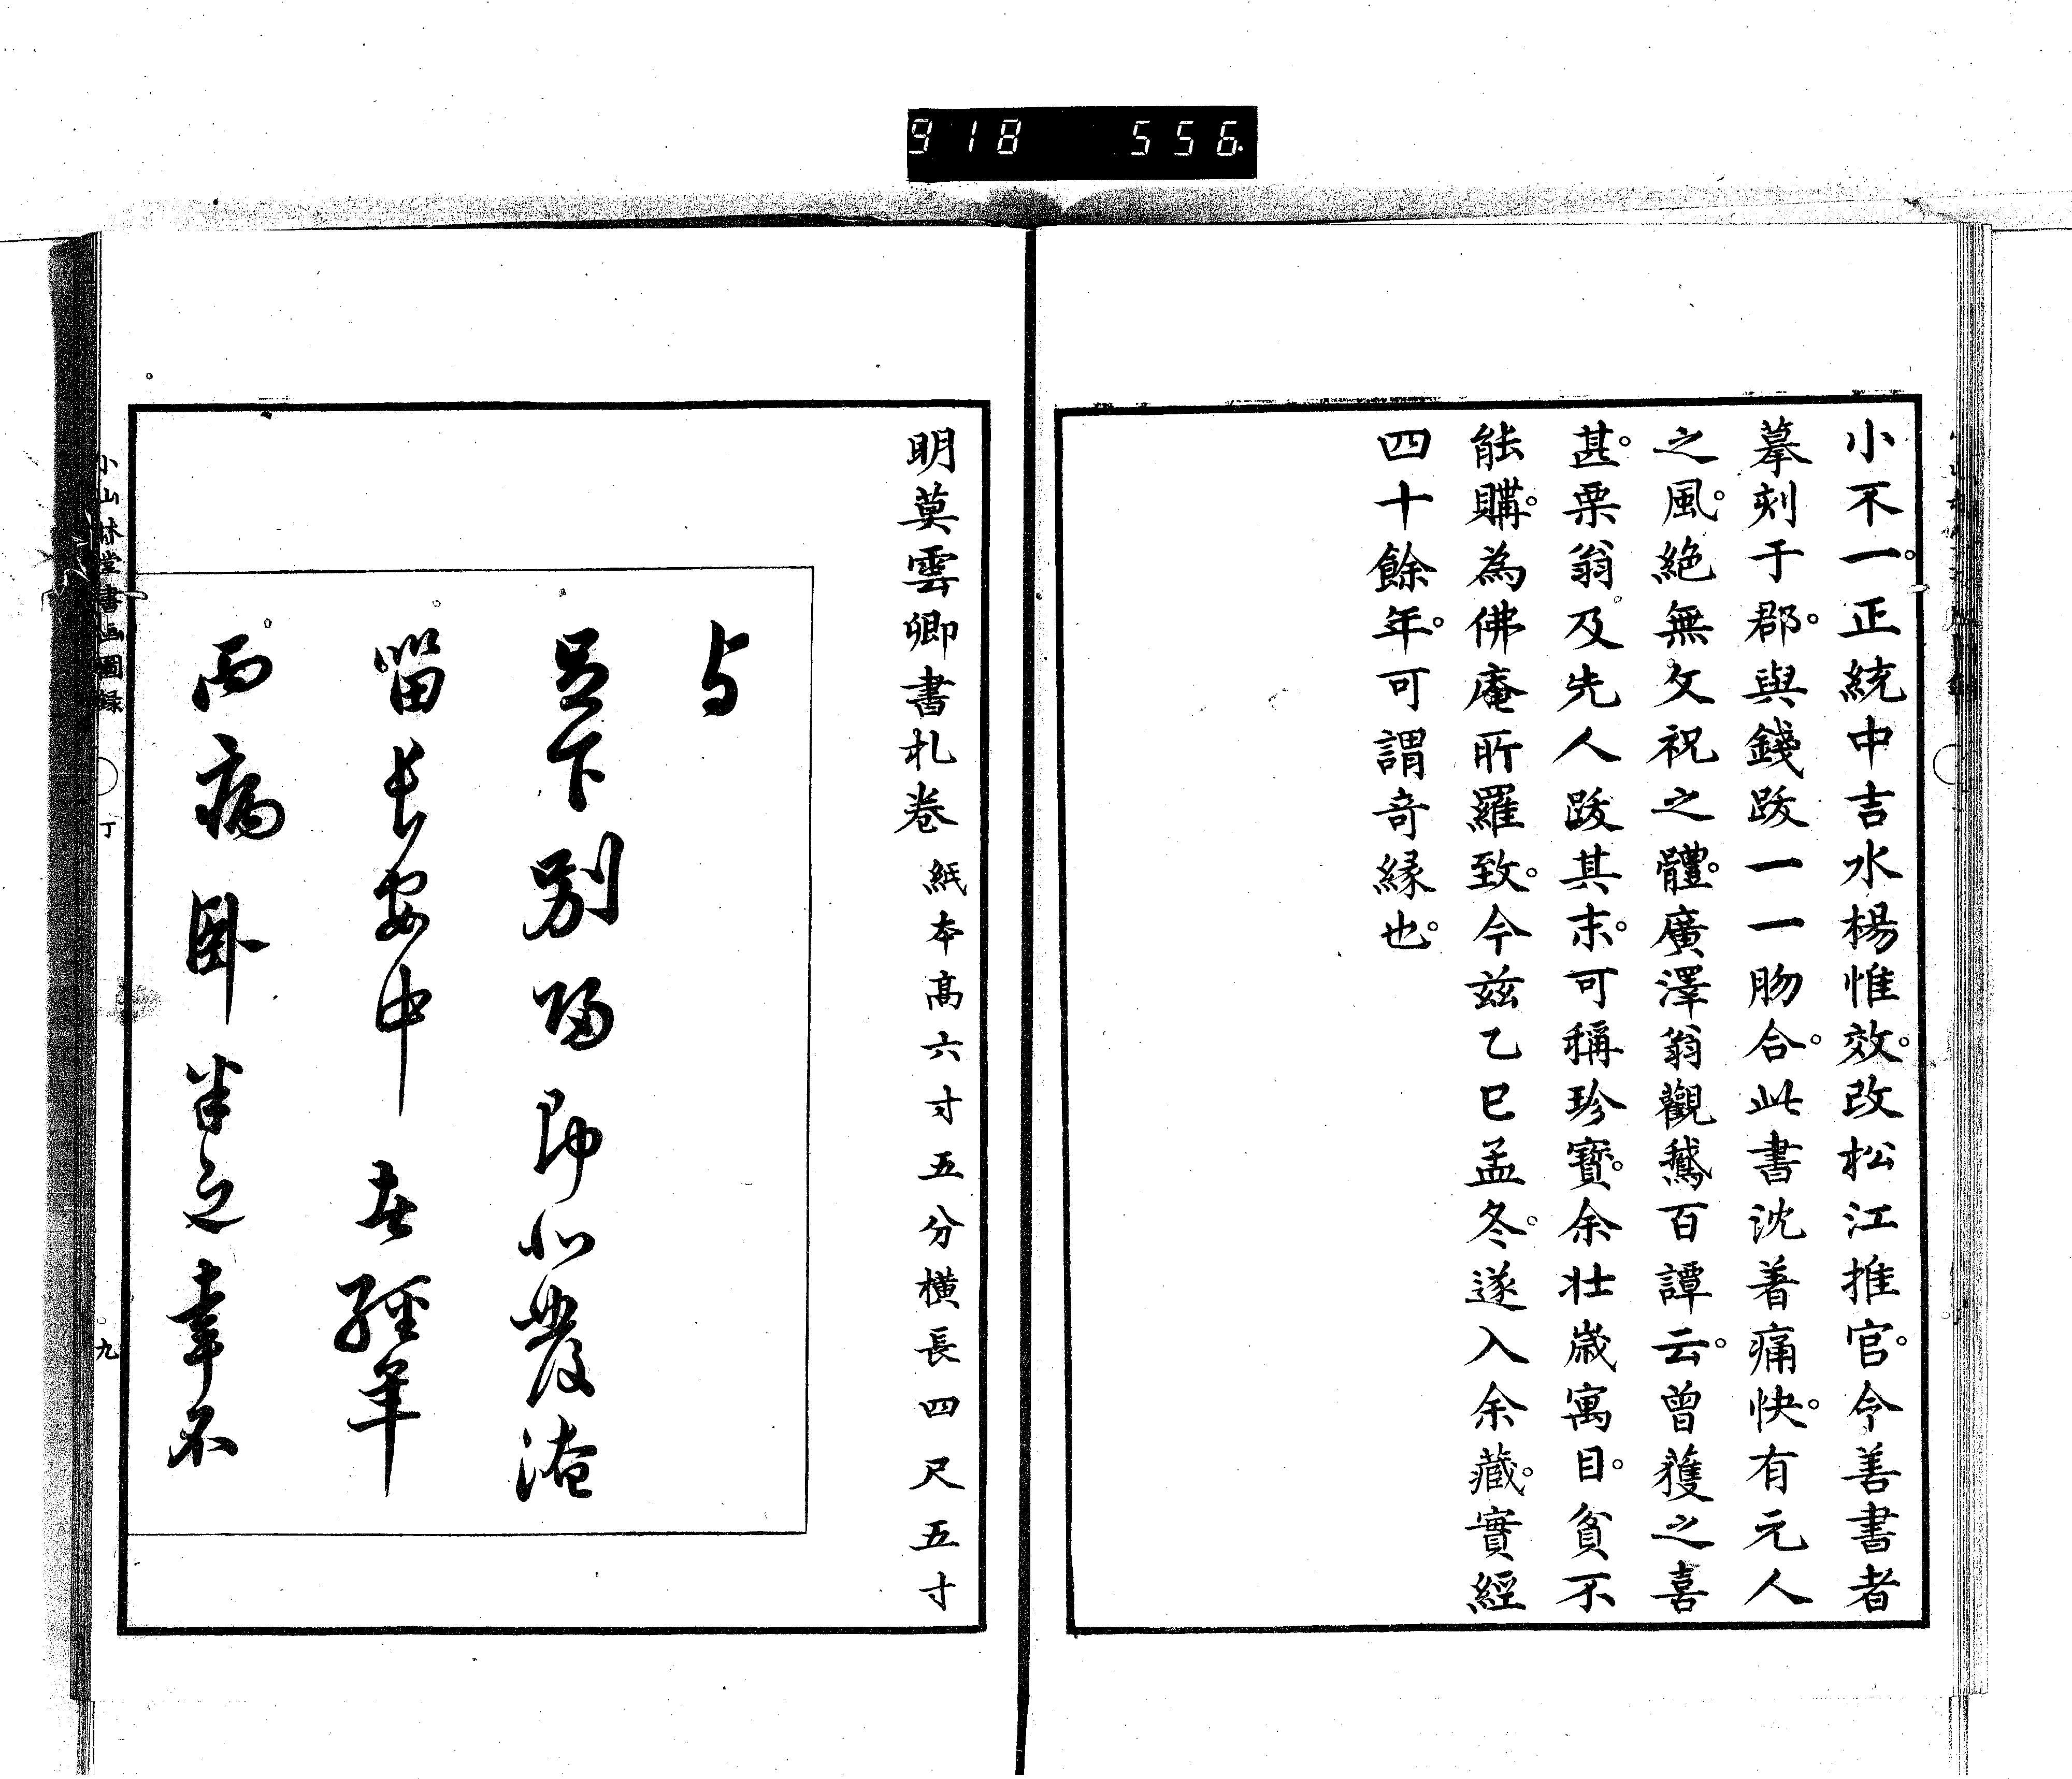 918 556
小不一。正統中吉水楊惟效。改松江推官。今善書者
摹刻于郡。與錢跋一一脗合。此書沈著痛快。有元人
之風。絶無文祝之體。廣澤翁觀鵞百譚云。曾獲之喜
甚。栗翁及先人跋其末。可稱珍寶。余壯歳寓目。貧不
能購。為佛庵所羅致。今茲乙巳孟冬。遂入余藏。實經
四十餘年。可謂竒縁也。
明莫雲卿書札卷 紙本高六寸五分橫長四尺五寸
与
足下別歸即北發淹
留長安中者經年
而病卧半之幸不
小山林堂書画圖録
丁
九